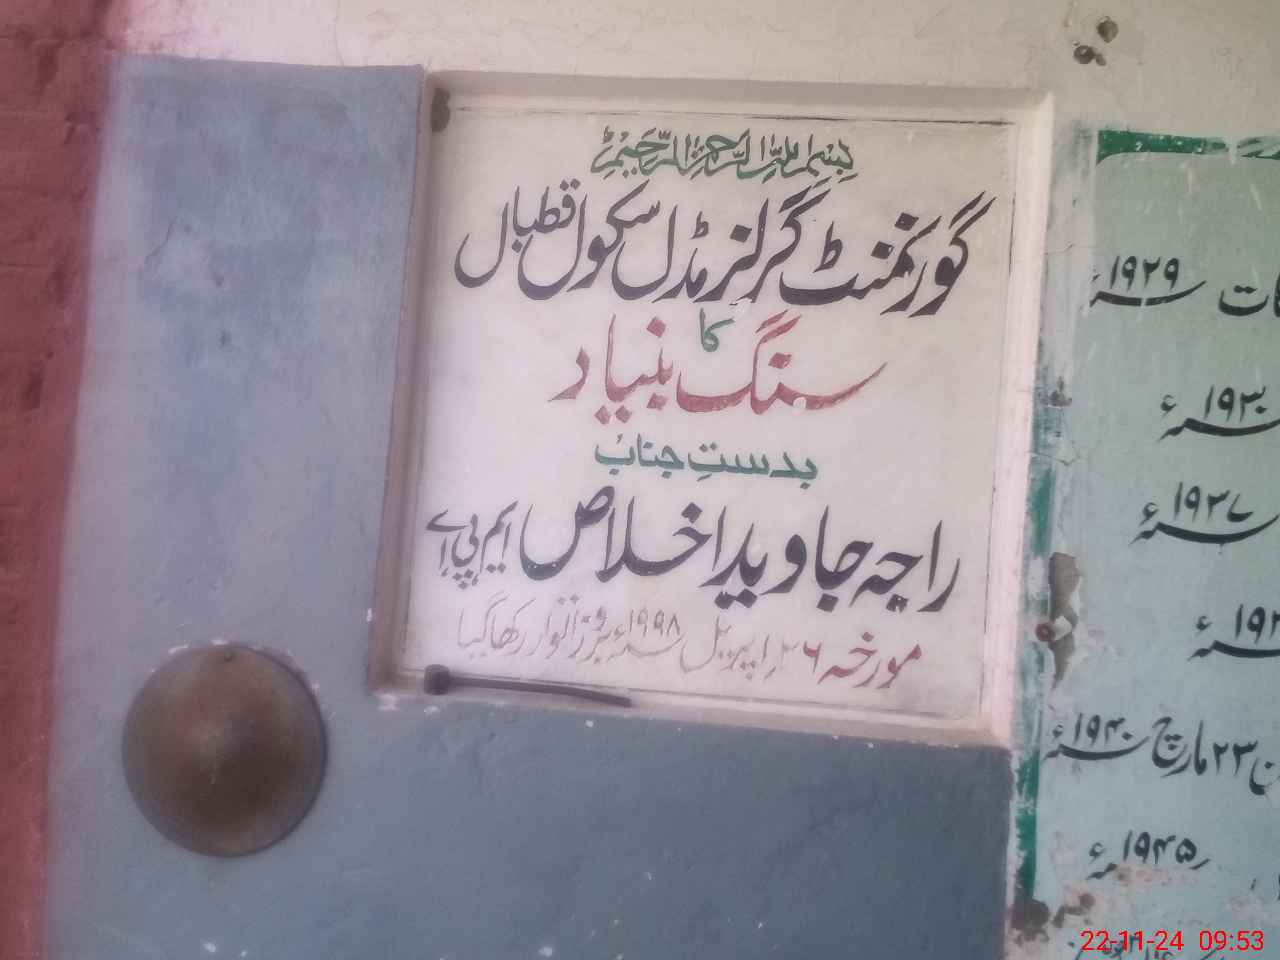 بِسْمِ اللّٰہِ الرَّحْمٰنِ الرَّحِیْمِ
گورنمنٹ گرلز مڈل سکول قطبال
کا
سنگ بنیاد
بدستِ جناب
راجہ جاوید اخلاص ایم پی اے
مورخہ ۲۶ اپریل ۱۹۹۸ء بروز اتوار رکھا گیا
۱۹۲۹ء
۱۹۳۰ء
۱۹۳۷ء
۲۳ مارچ ۱۹۴۰ء
۱۹۴۵ء
22-11-24 09:53